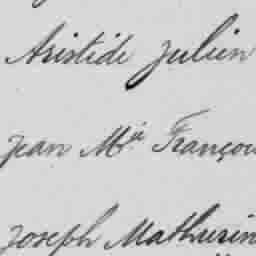 Aristide Julien
Jean Mie Françou
Joseph Mathurin